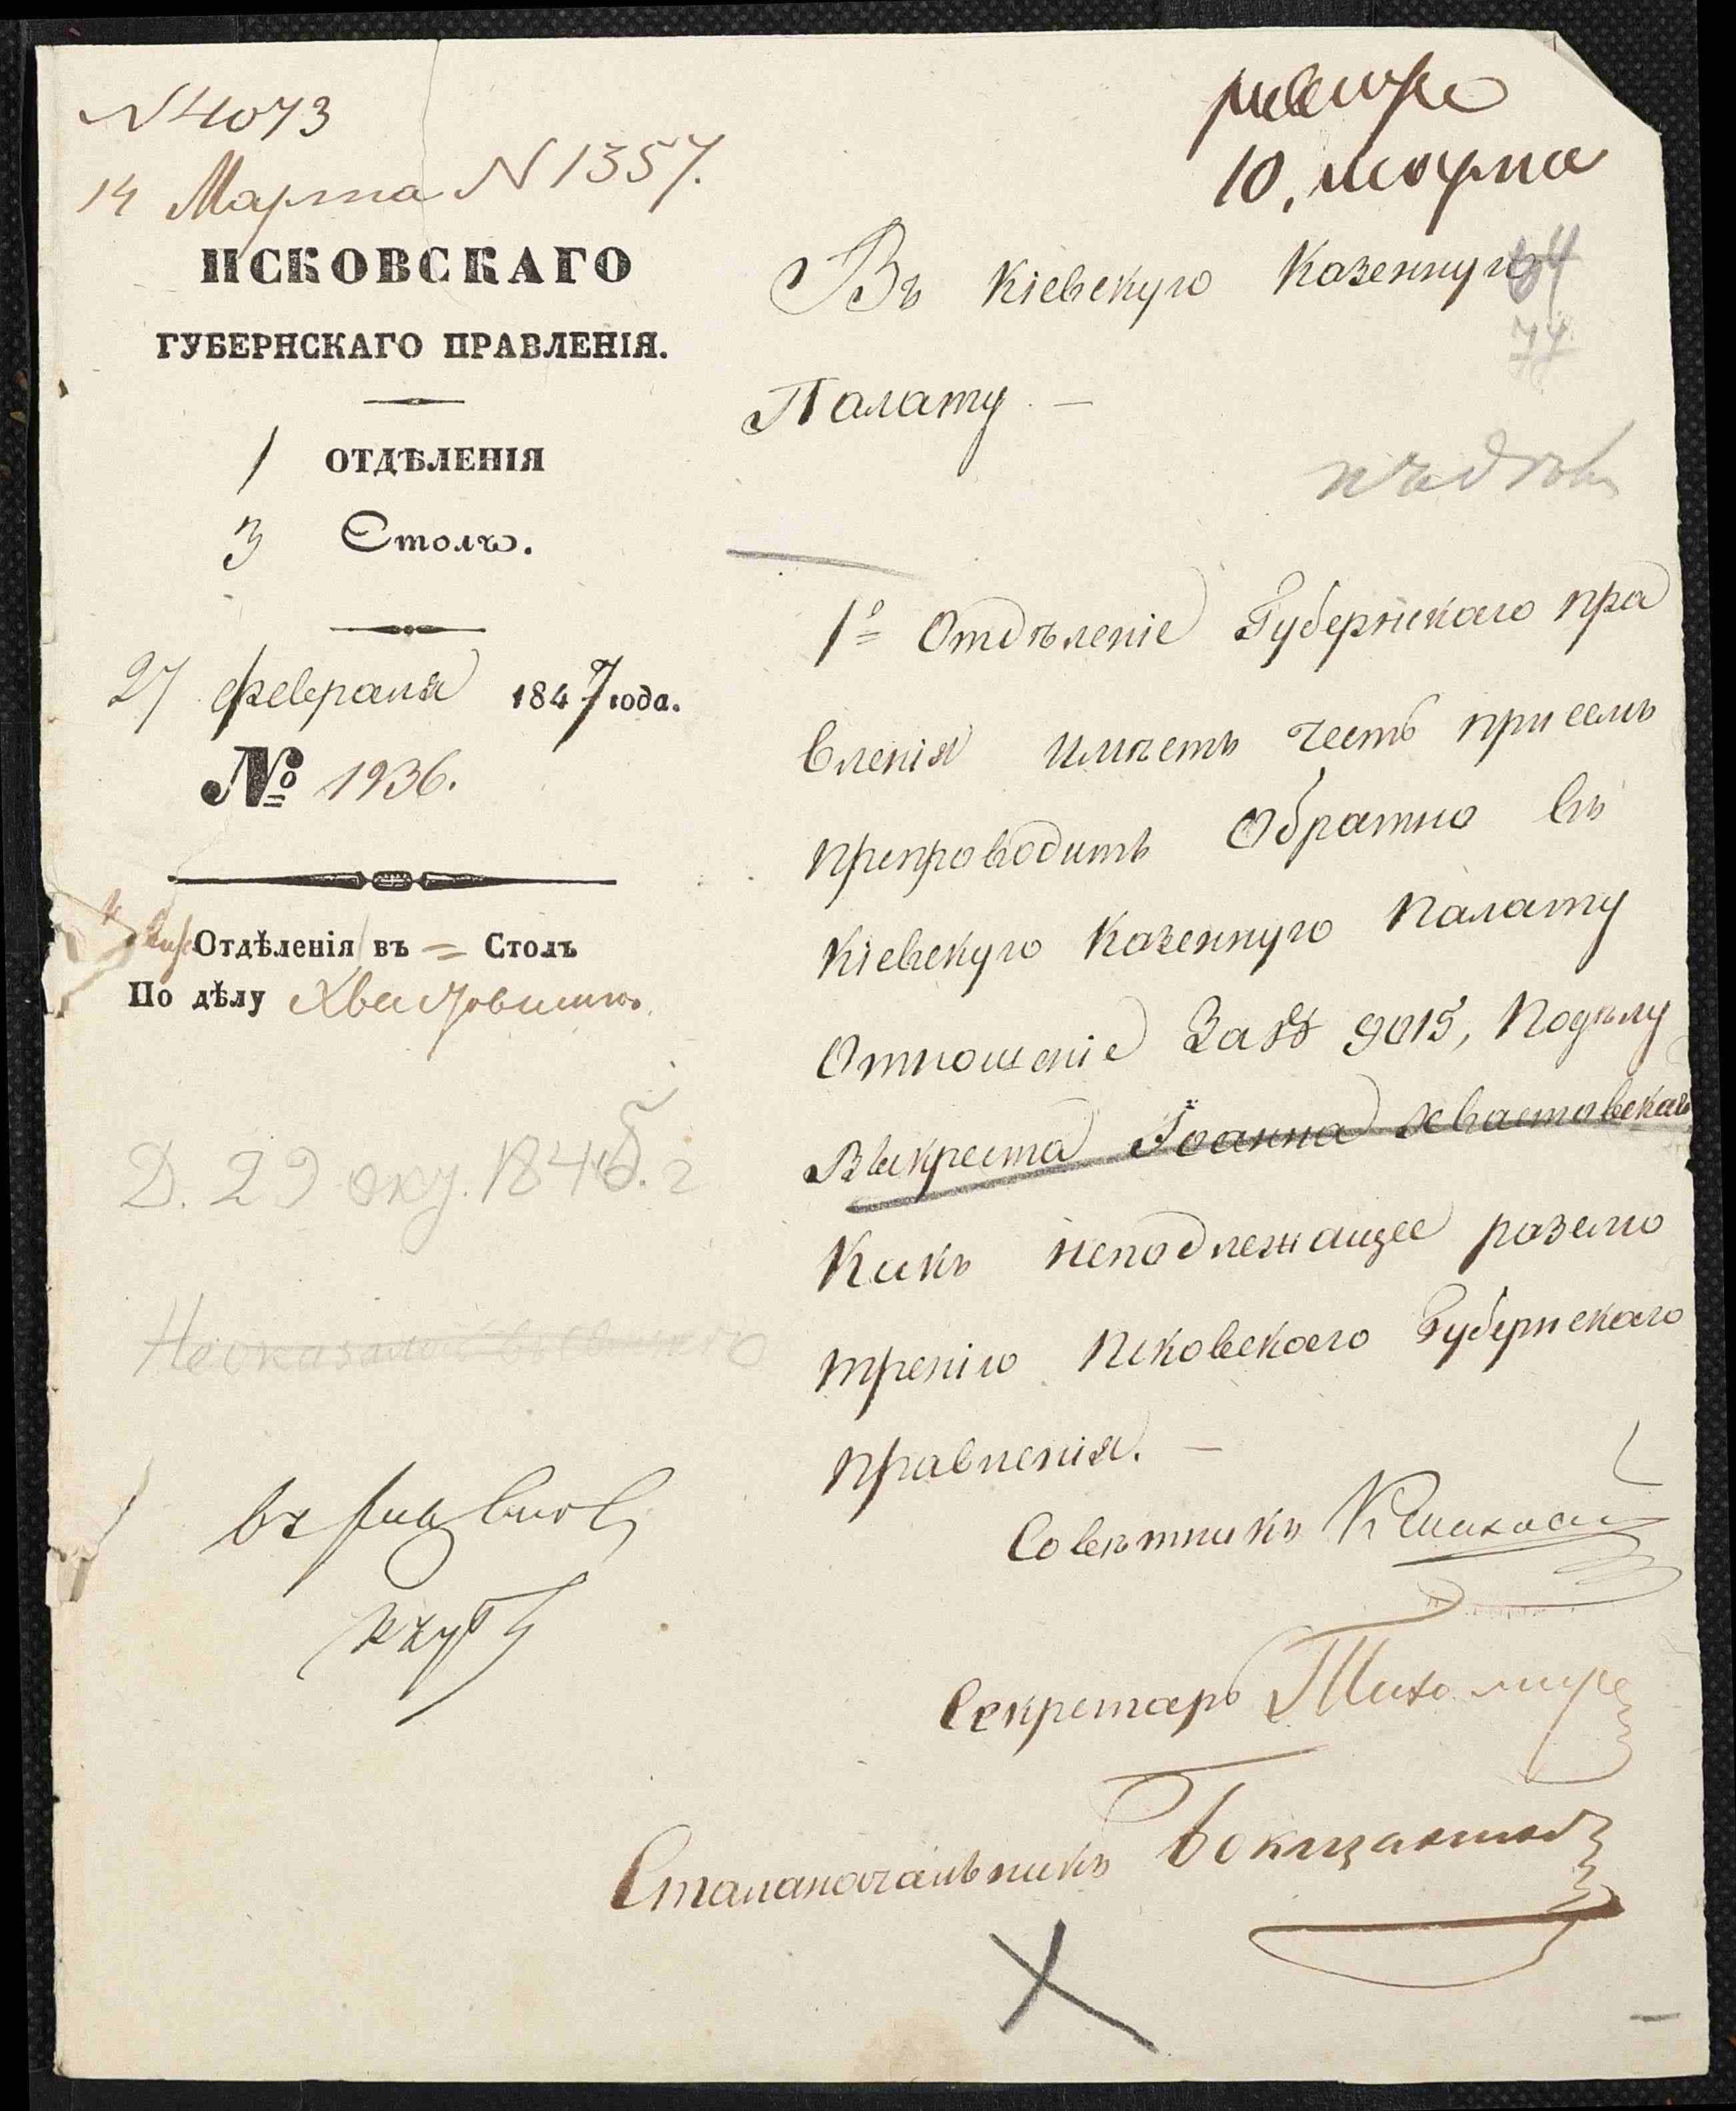 N 4073
14 Марта N 1357.
ПСКОВСКАГО
ГУБЕРНСКАГО ПРАВЛЕНІЯ.
1 ОТДѢЛЕНІЯ
3 Столъ.
27 февраля 1847 года.
№ 1936.
Отдѣленія въ = Столъ
По дѣлу
Д. 29 окт. 184
10, марта
Въ Кіевскую Казенную
74
Палату. —
1е Отдѣленіе Губернскаго пра
вленія имѣетъ честь при семъ
препроводить обратно въ
Кіевскую Казенную Палату
Отношеніе За № 9015, По дѣлу
Выкреста Іоанна Хвастовскаго
Какъ неподлежащее разсмо
трѣнію Псковскаго Губернскаго
правленія. —
Совѣтникъ
Секретарь Тихомиров
Сталаначальникъ